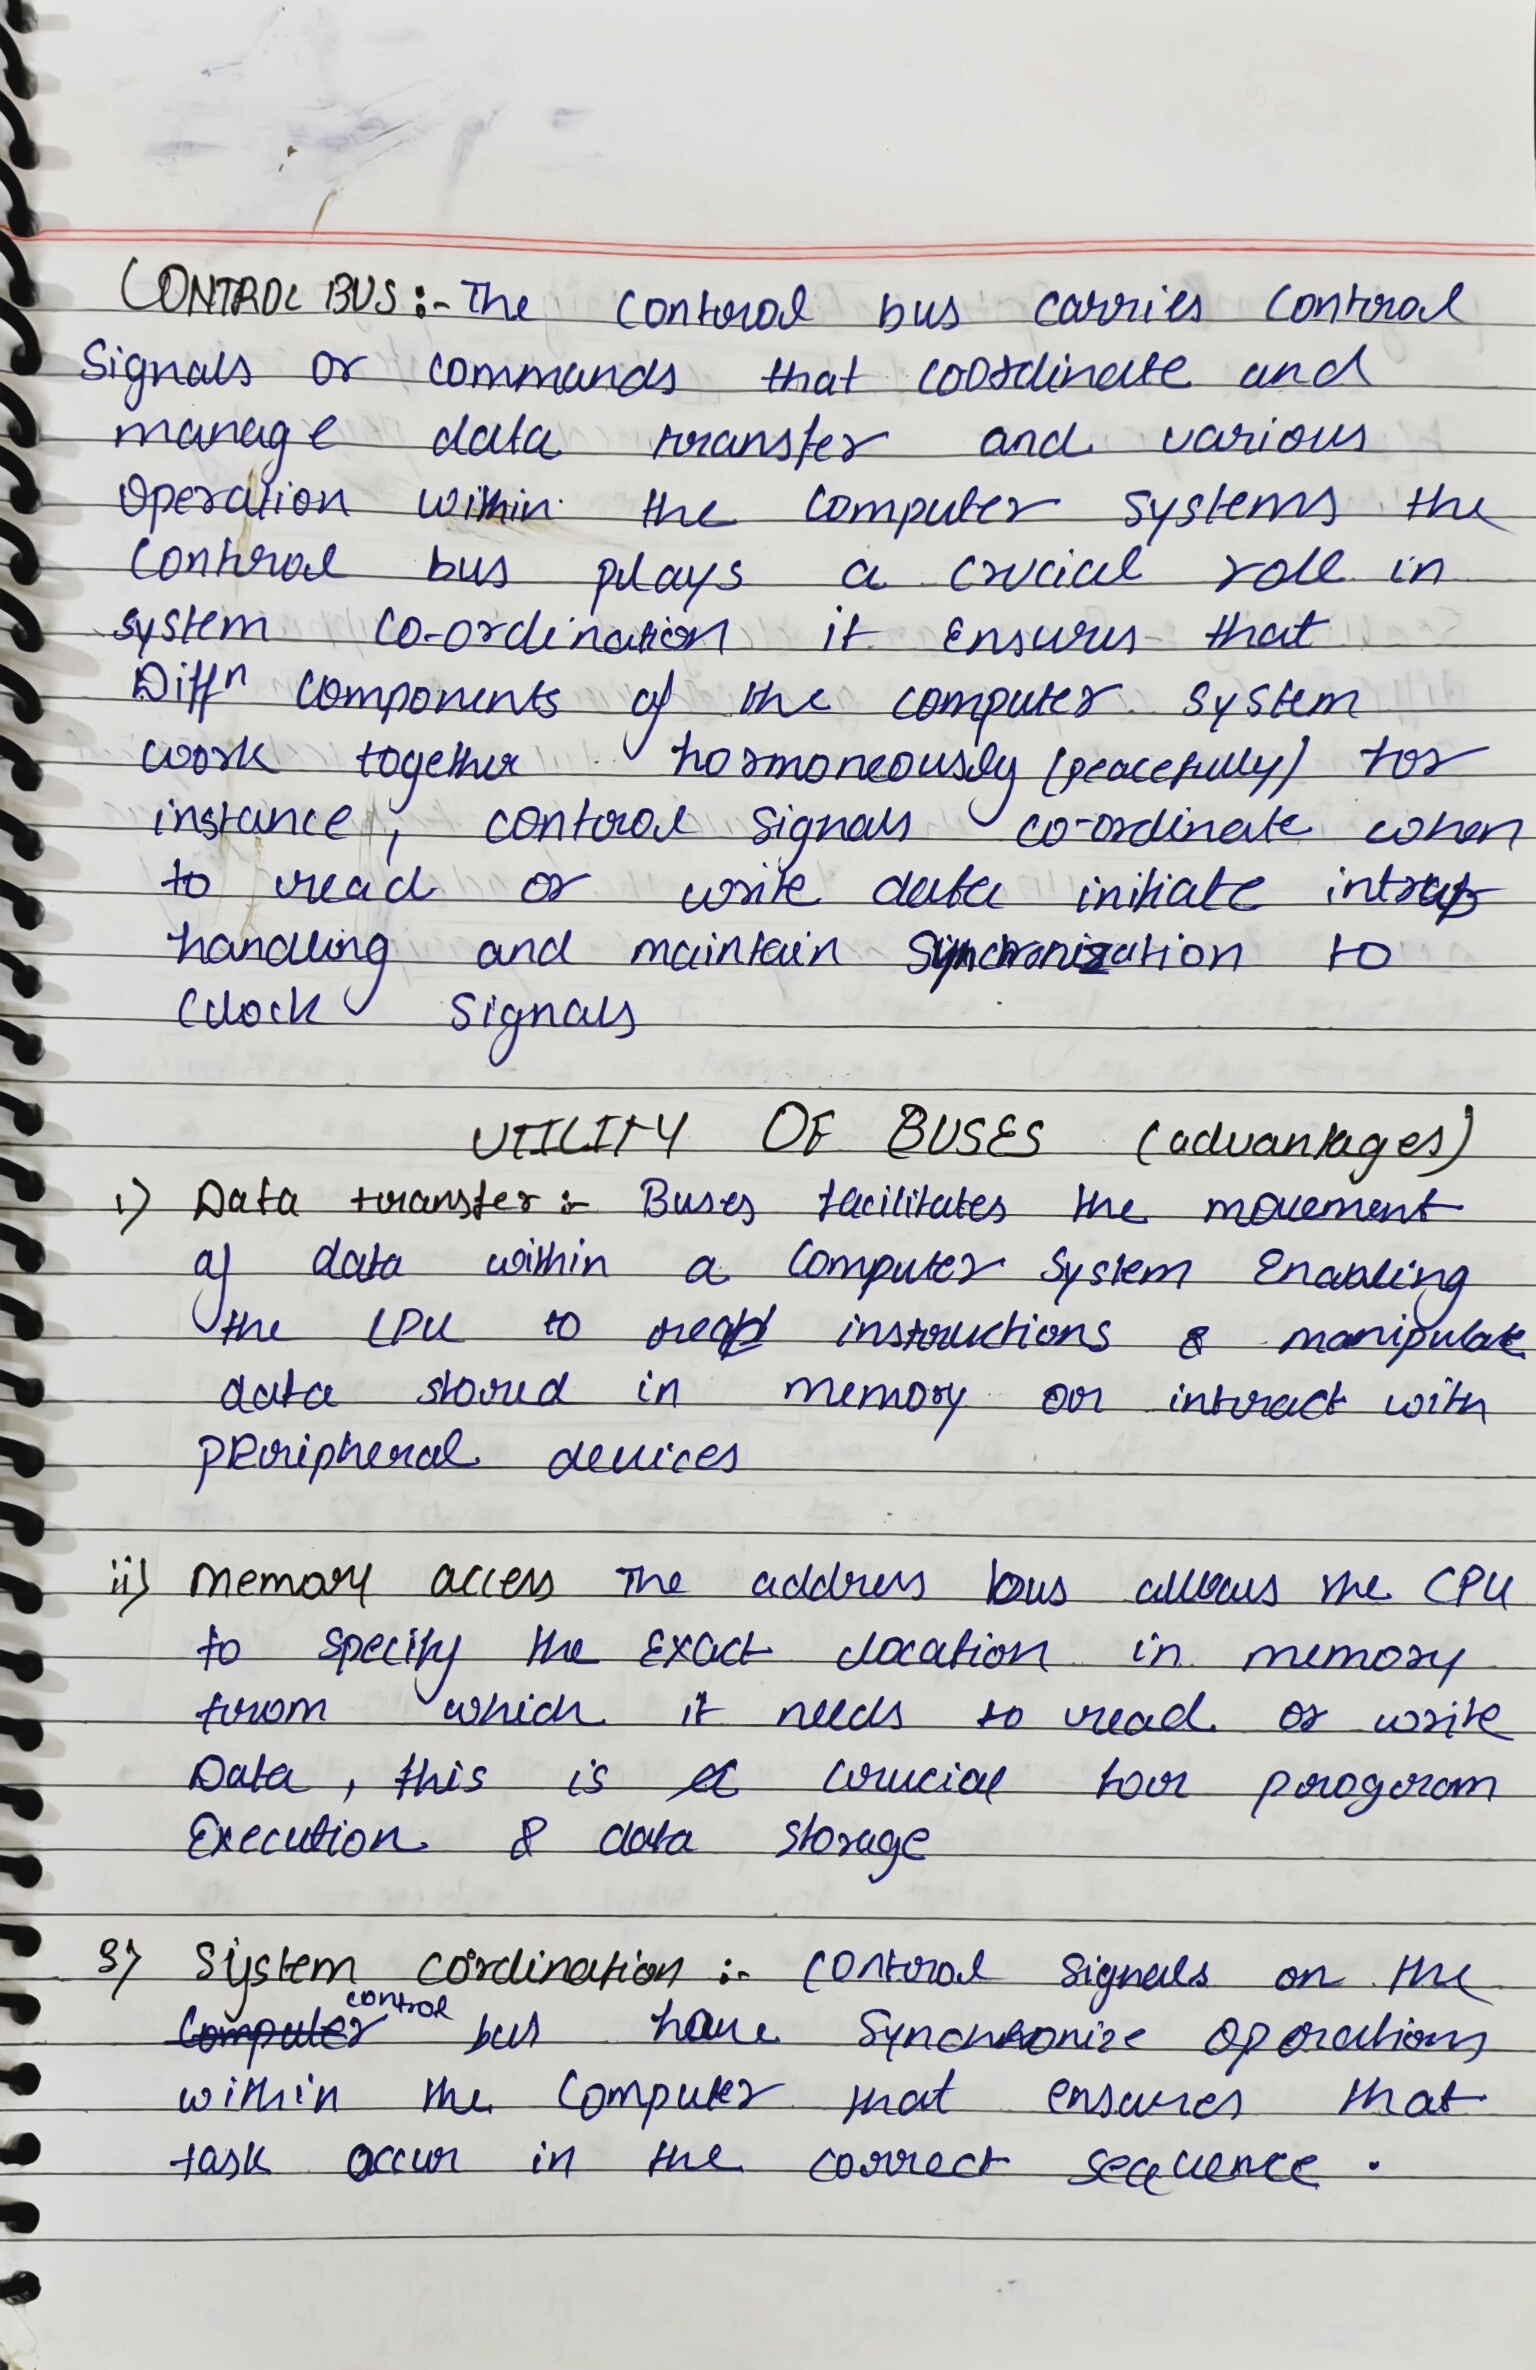 CONTROL BUS :- The control bus carries control
Signals or commands that coordinate and
manage data transfer and various
Operation within the computer systems the
control bus plays a crucial role in
system co-ordination it Ensures that
Diffn components of the computer system
work together hormoneously (peacefully) for
instance, control signals co-ordinate when
to read or write data initiate
handling and maintain Synchronization to
Clock Signals
UTILITY OF BUSES (advantages)
i) Data transfer :- Buses facilitates the movement
of data within a computer System Enabling
the CPU to read instructions & manipulate
data stored in memory or intract with
peripheral devices
ii) Memory access The address bus allows the CPU
to specify the Exact location in memory
from which it needs to read or write
Data, this is a crucial for program
Execution & data storage
3) System cordination :- Control Signals on the
Computer control bus have Synchronize operations
within the Computer that ensures that
task occur in the correct sequence .